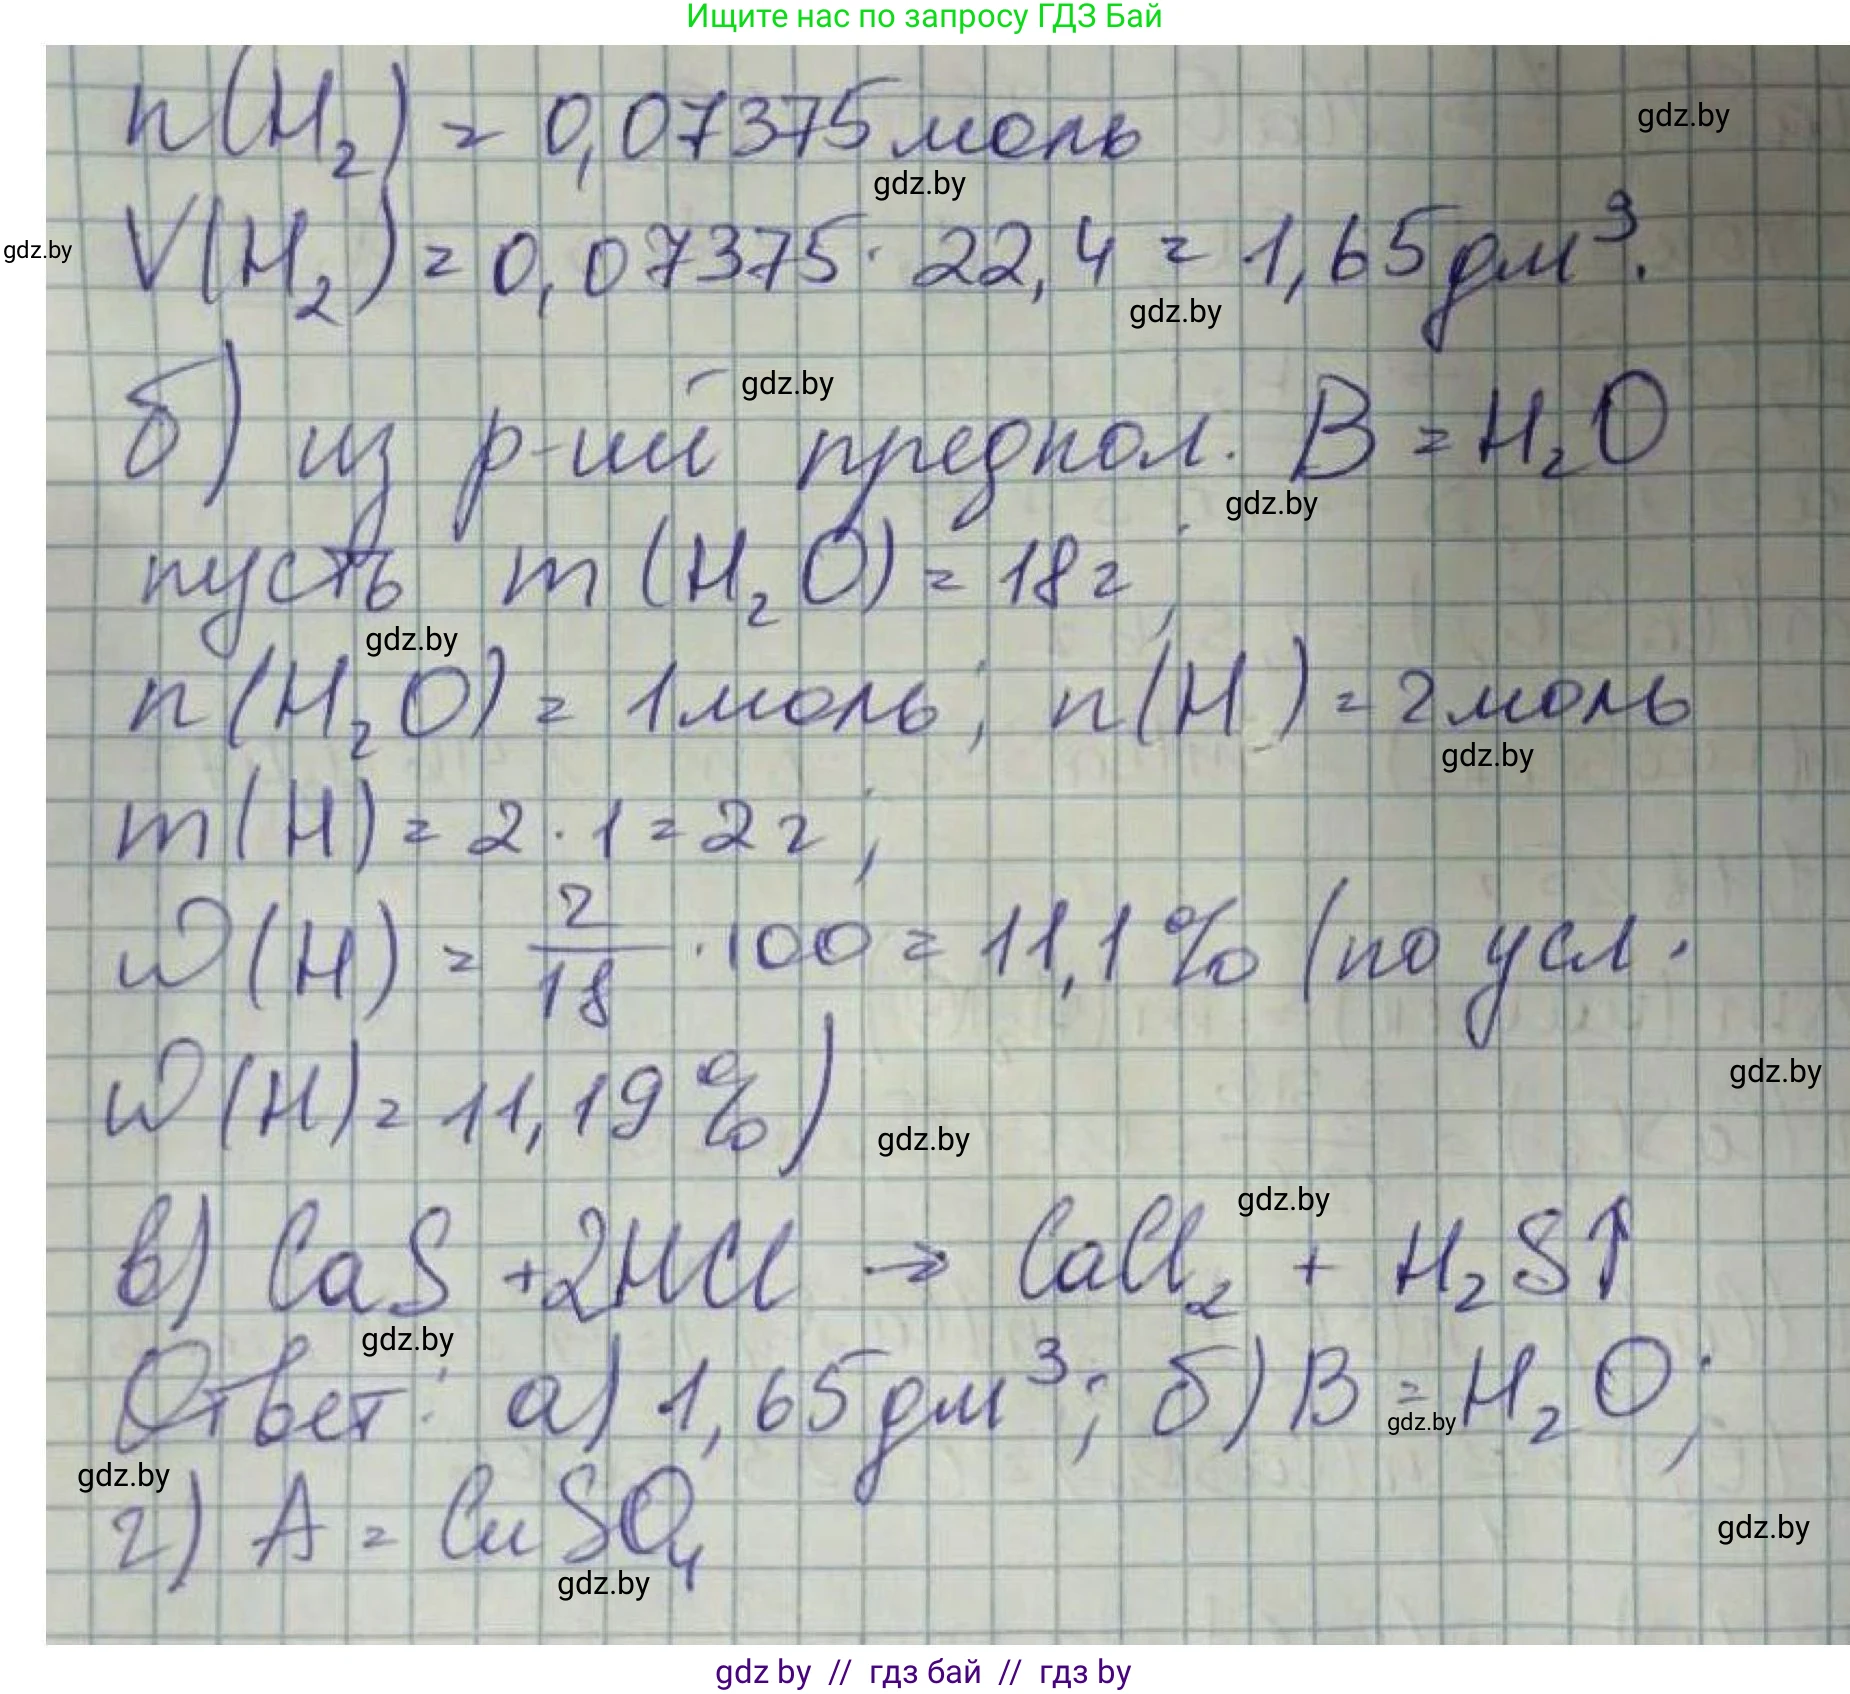 Ищите нас по запросу ГДЗ Бай
n(H₂) = 0,07375 моль
gdz.by
gdz.by
V(H₂) = 0,07375 · 22,4 = 1,65 дм³.
gdz.by
gdz.by
gdz.by
б) из р-ий предпол. B = H₂O
gdz.by
пусть m(H₂O) = 18 г;
gdz.by
n(H₂O) = 1 моль; n(H) = 2 моль
gdz.by
m(H) = 2 · 1 = 2 г;
w(H) = 2/18 · 100 = 11,1 % (по усл.
gdz.by
w(H) = 11,19 %)
gdz.by
gdz.by
в) CaS + 2HCl → CaCl₂ + H₂S↑
gdz.by
Ответ: а) 1,65 дм³; б) B = H₂O;
gdz.by
gdz.by
г) A = CuSO₄
gdz.by
gdz.by
gdz by // гдз бай // гдз by